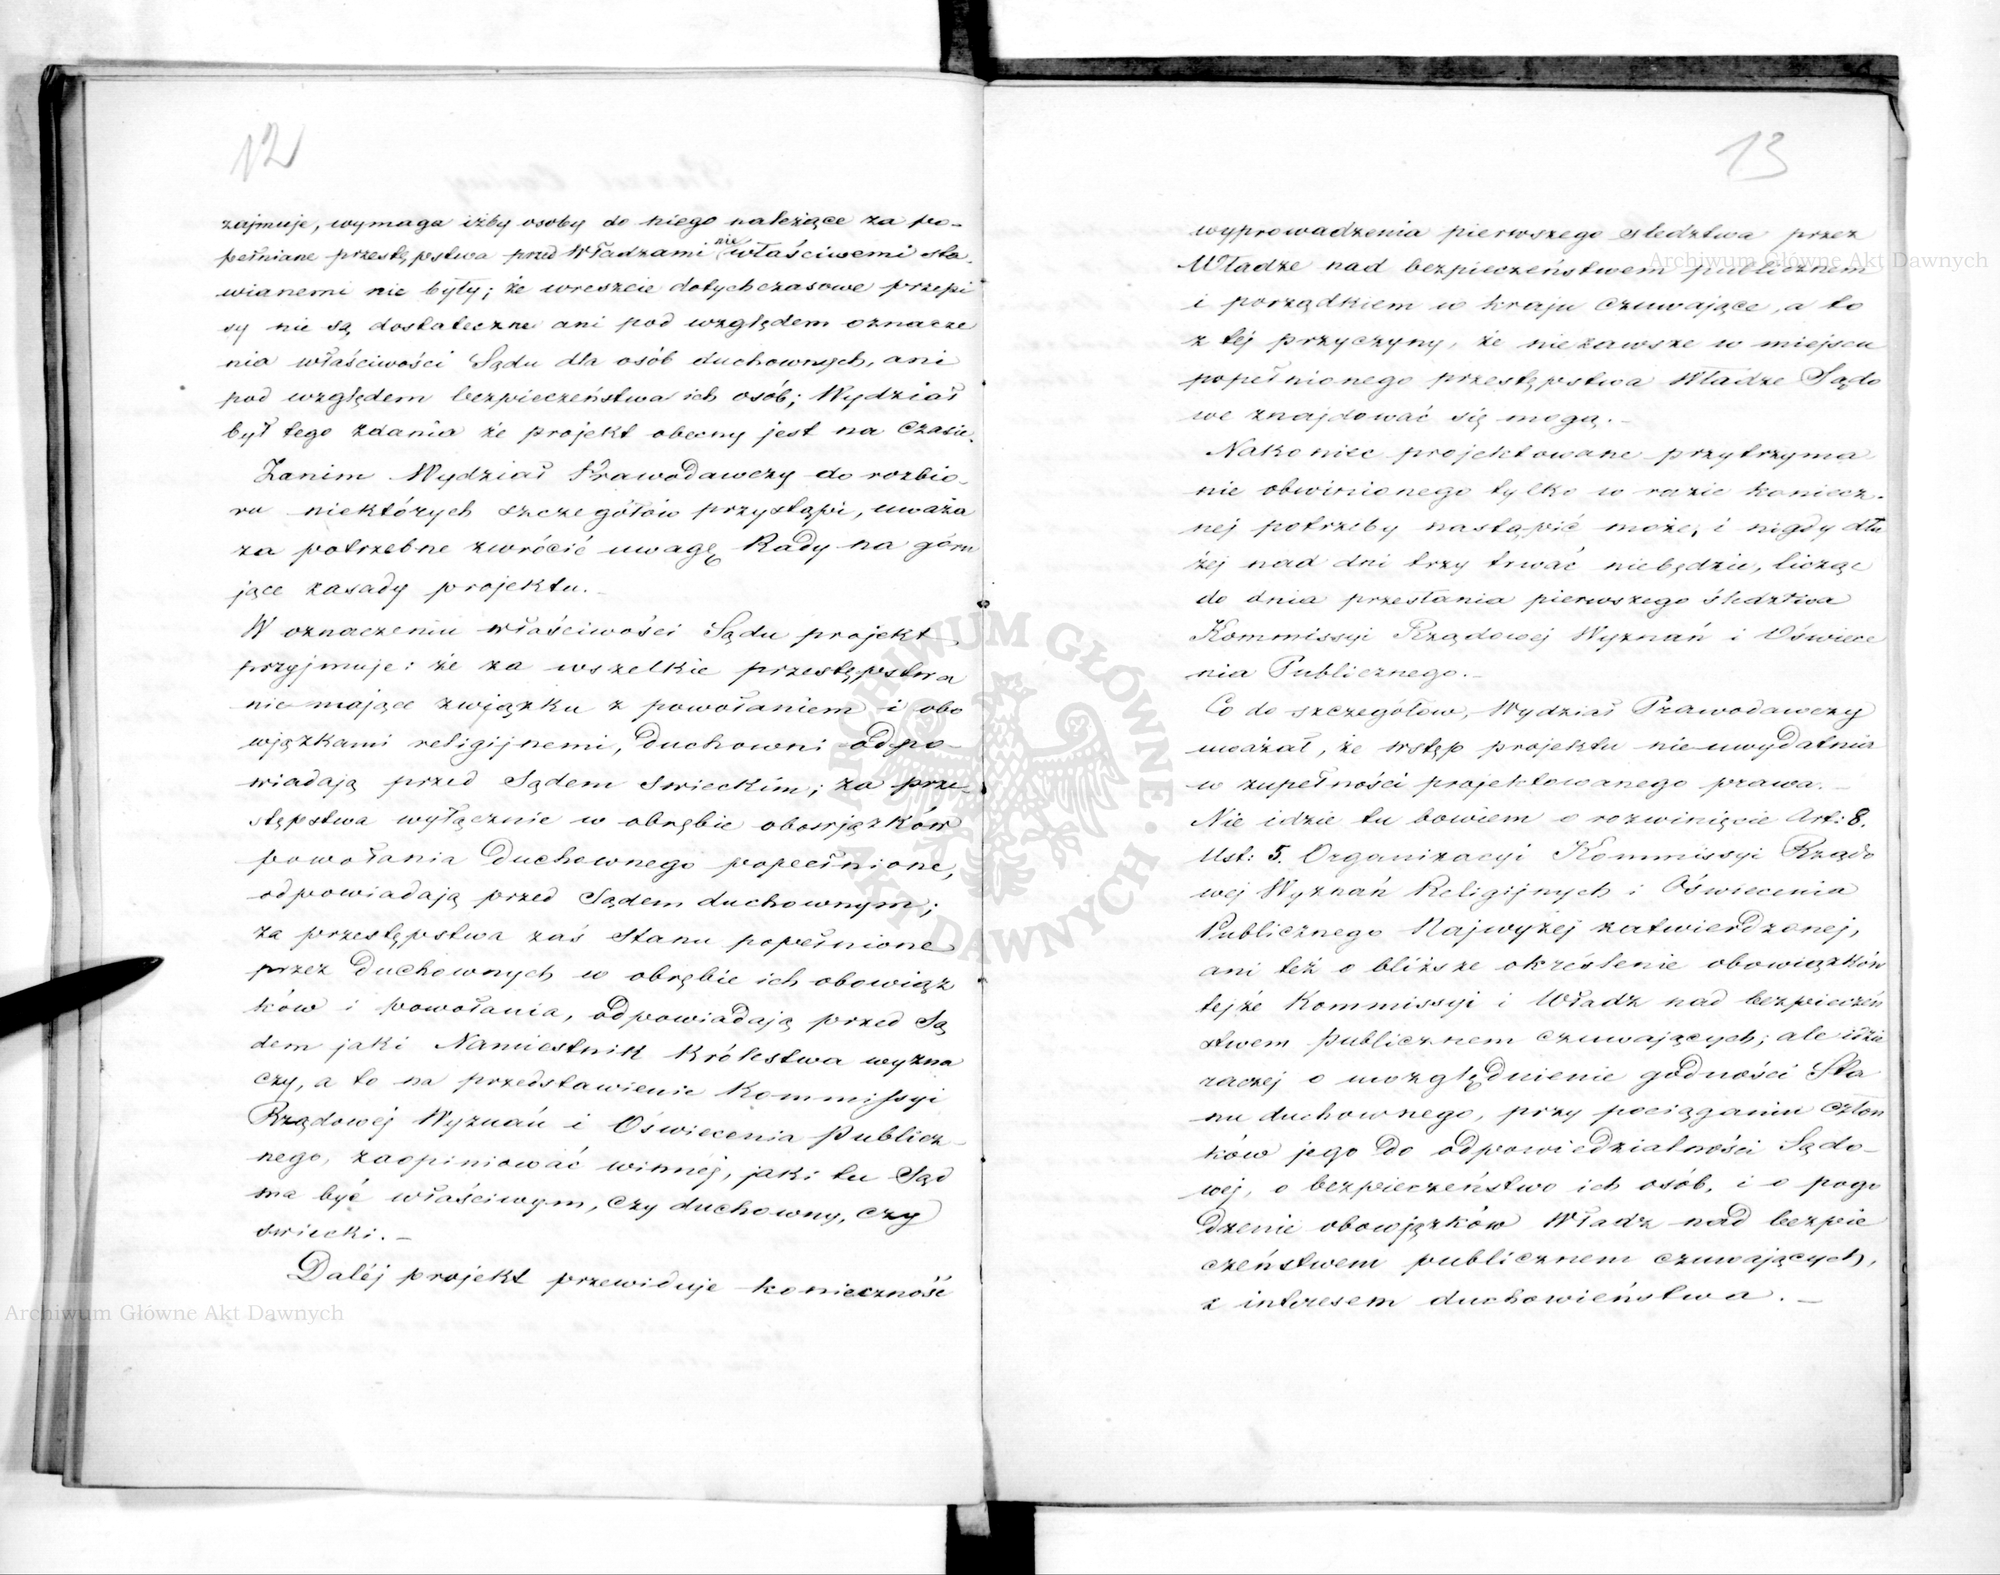 12
zajmuje, wymaga iżby osoby do niego należące za po-
pełniane przestępstwa przed Władzami nie właściwemi sta-
wianemi nie były; że wreszcie dotychczasowe przepi
sy nie są dostateczne ani pod względem oznacze
nia właściwości Sądu dla osób duchownych, ani
pod względem bezpieczeństwa ich osób; Wydział
był tego zdania że projekt obecny jest na czasie.
Zanim Wydział Prawodawczy do rozbio-
ru niektórych szczegółów przystąpi, uważa
za potrzebne zwrócić uwagę Rady na góru
jące zasady projektu. –
W oznaczeniu właściwości Sądu projekt
przyjmuje: że za wszelkie przestępstwa
nie mające związku z powołaniem i obo
wjązkami religijnemi, Duchowni odpo-
wiadają przed Sądem Swieckim; za prze-
stępstwa wyłącznie w obrębie obowjązków
powołania Duchownego popełnione,
odpowiadają przed Sądem duchownym;
za przestępstwa zaś Stanu popełnione
przez Duchownych w obrębie ich obowiąz
ków i powołania, odpowiadają przed Są
dem jaki Namiestnik Królestwa wyzna
czy, a to na przedstawienie Kommissyi
Rządowéj Wyznań i Oświecenia Publicz-
nego, zaopiniować winnéj, jaki tu Sąd
ma być właściwym, czy duchowny, czy
swiecki. –
Daléj projekt przewiduje konieczność
13
wyprowadzenia pierwszego sledztwa przez
Władze nad bezpieczeństwem publicznem
i porządkiem w kraju czuwające, a to
z téj przyczyny, że niezawsze w miejscu
popełnionego przestępstwa Władze Sądo
we znajdować się mogą. –
Nakoniec projektowane przytrzyma
nie obwinionego tylko w razie koniecz-
nej potrzeby nastąpić może, i nigdy dłu
żej nad dni trzy trwać niebędzie, licząc
do dnia przesłania pierwszego śledztwa
Kommissyi Rządowej Wyznań i Oświece
nia Publicznego. –
Co do szczegółów, Wydział Prawodawczy
uważał, że wstęp projektu nie uwydatnia
w zupełności projektowanego prawa. –
Nie idzie tu bowiem o rozwinięcie Art: 8.
Ust: 5. Organizacyi Kommissyi Rządo
wej Wyznań Religijnych i Oświecenia
Publicznego Najwyżej zatwierdzonej,
ani też o bliższe określenie obowiązków
tejże Kommissyi i Władz nad bezpieczeń
stwem publicznem czuwających; ale idzie
raczej o uwzględnienie godności Sta
nu duchownego, przy pociąganiu człon
ków jego do odpowiedzialności Sądo-
wej, o bezpieczeństwo ich osób, i o pogo
dzenie obowjązków Władz nad bezpie
czeństwem publicznem czuwających,
z interesem duchowieństwa. –
Archiwum Główne Akt Dawnych
Archiwum Główne Akt Dawnych
ARCHIWUM GŁÓWNE AKT DAWNYCH